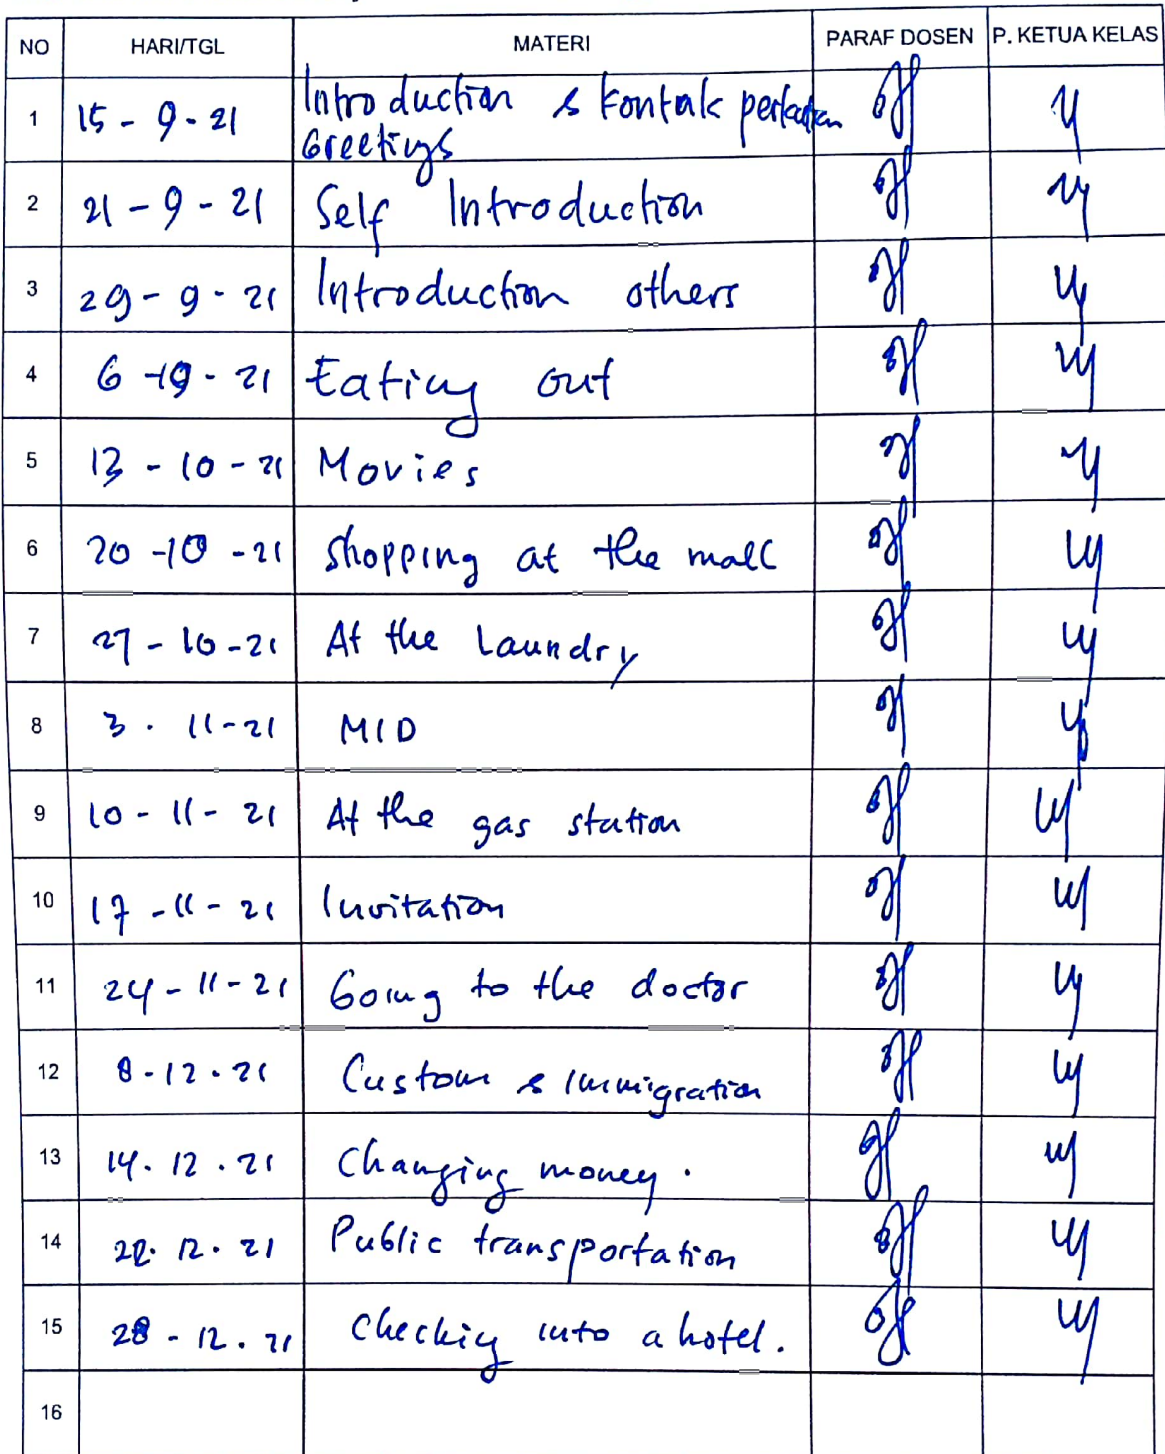 NO HARI/TGL MATERI PARAF DOSEN P. KETUA KELAS
1 15 - 9 - 21 Introduction & Kontrak perkuliahan
Greetings
2 21 - 9 - 21 Self Introduction
3 29 - 9 - 21 Introduction others
4 6 - 10 - 21 Eating out
5 13 - 10 - 21 Movies
6 20 - 10 - 21 Shopping at the mall
7 27 - 10 - 21 At the Laundry
8 3 . 11 - 21 MID
9 10 - 11 - 21 At the gas station
10 17 - 11 - 21 Invitation
11 24 - 11 - 21 Going to the doctor
12 8 - 12 . 21 Custom & Immigration
13 14 . 12 . 21 Changing money .
14 22 . 12 . 21 Public transportation
15 28 - 12 . 21 Checking into a hotel .
16